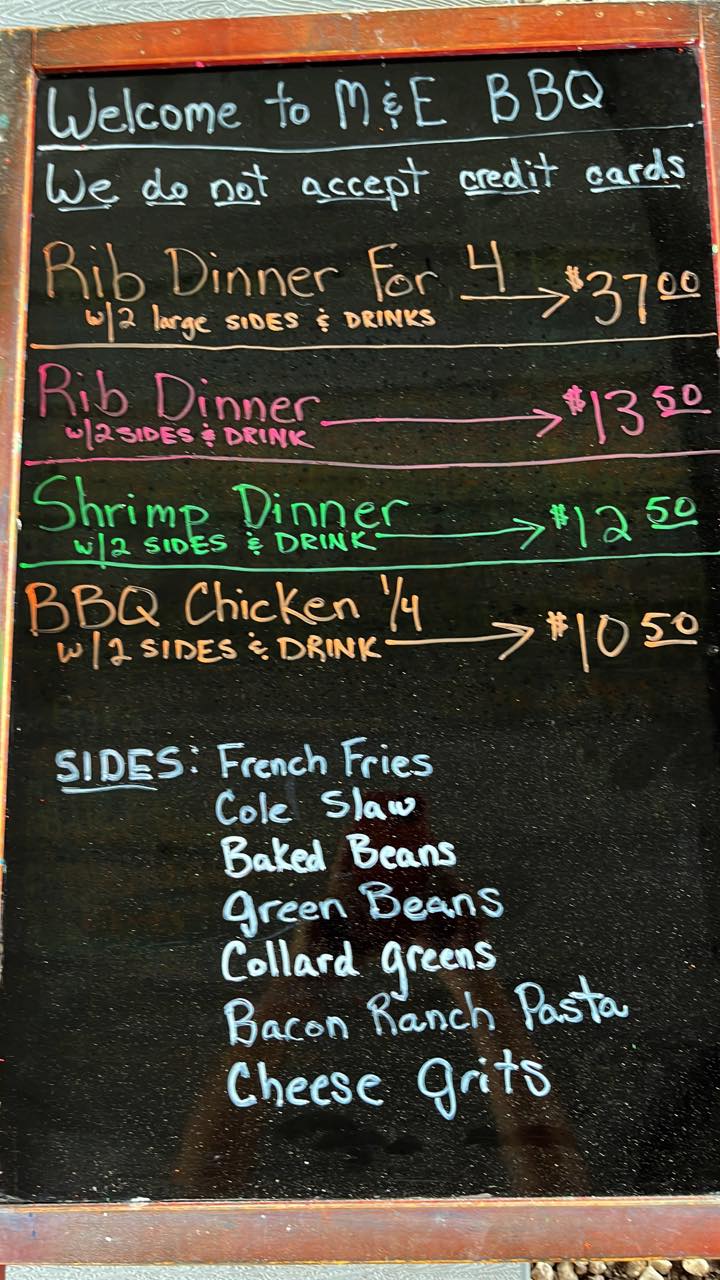 Welcome to M&E BBQ
We do not accept credit cards
Rib Dinner For 4 → $37.00
w/2 large SIDES & DRINKS
Rib Dinner → $13.50
w/2 SIDES & DRINK
Shrimp Dinner → $12.50
w/2 SIDES & DRINK
BBQ Chicken 1/4 → $10.50
w/2 SIDES & DRINK
SIDES: French Fries
Cole Slaw
Baked Beans
green Beans
Collard greens
Bacon Ranch Pasta
Cheese grits